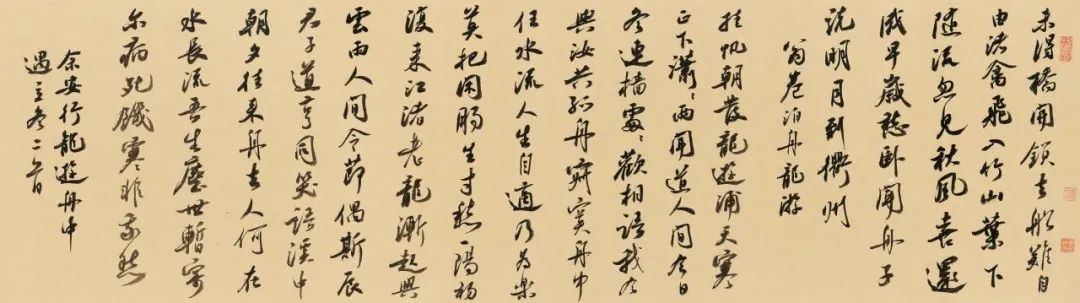 未得橋開鎖去船難自
由渚禽飛入竹山葉下
隨流忽見秋風喜還
成早歲愁卧聞舟子
說明月到衢州
翁卷泊舟龍游
掛帆朝發龍遊浦天寒
正下瀟〻雨聞道人間今日
冬連檣處〻歡相語我今
與汝共孤舟寂寞舟中
任水流人生自適乃為樂
莫把閒腸生寸愁一陽初
復來江渚老龍漸起興
雲雨人間令節偶斯辰
君子道亨同笑語溪中
朝夕往來舟去人何在
水長流吾生塵世暫寄
爾病死饑寒非我愁
余安行龍遊舟中
遇立冬二首